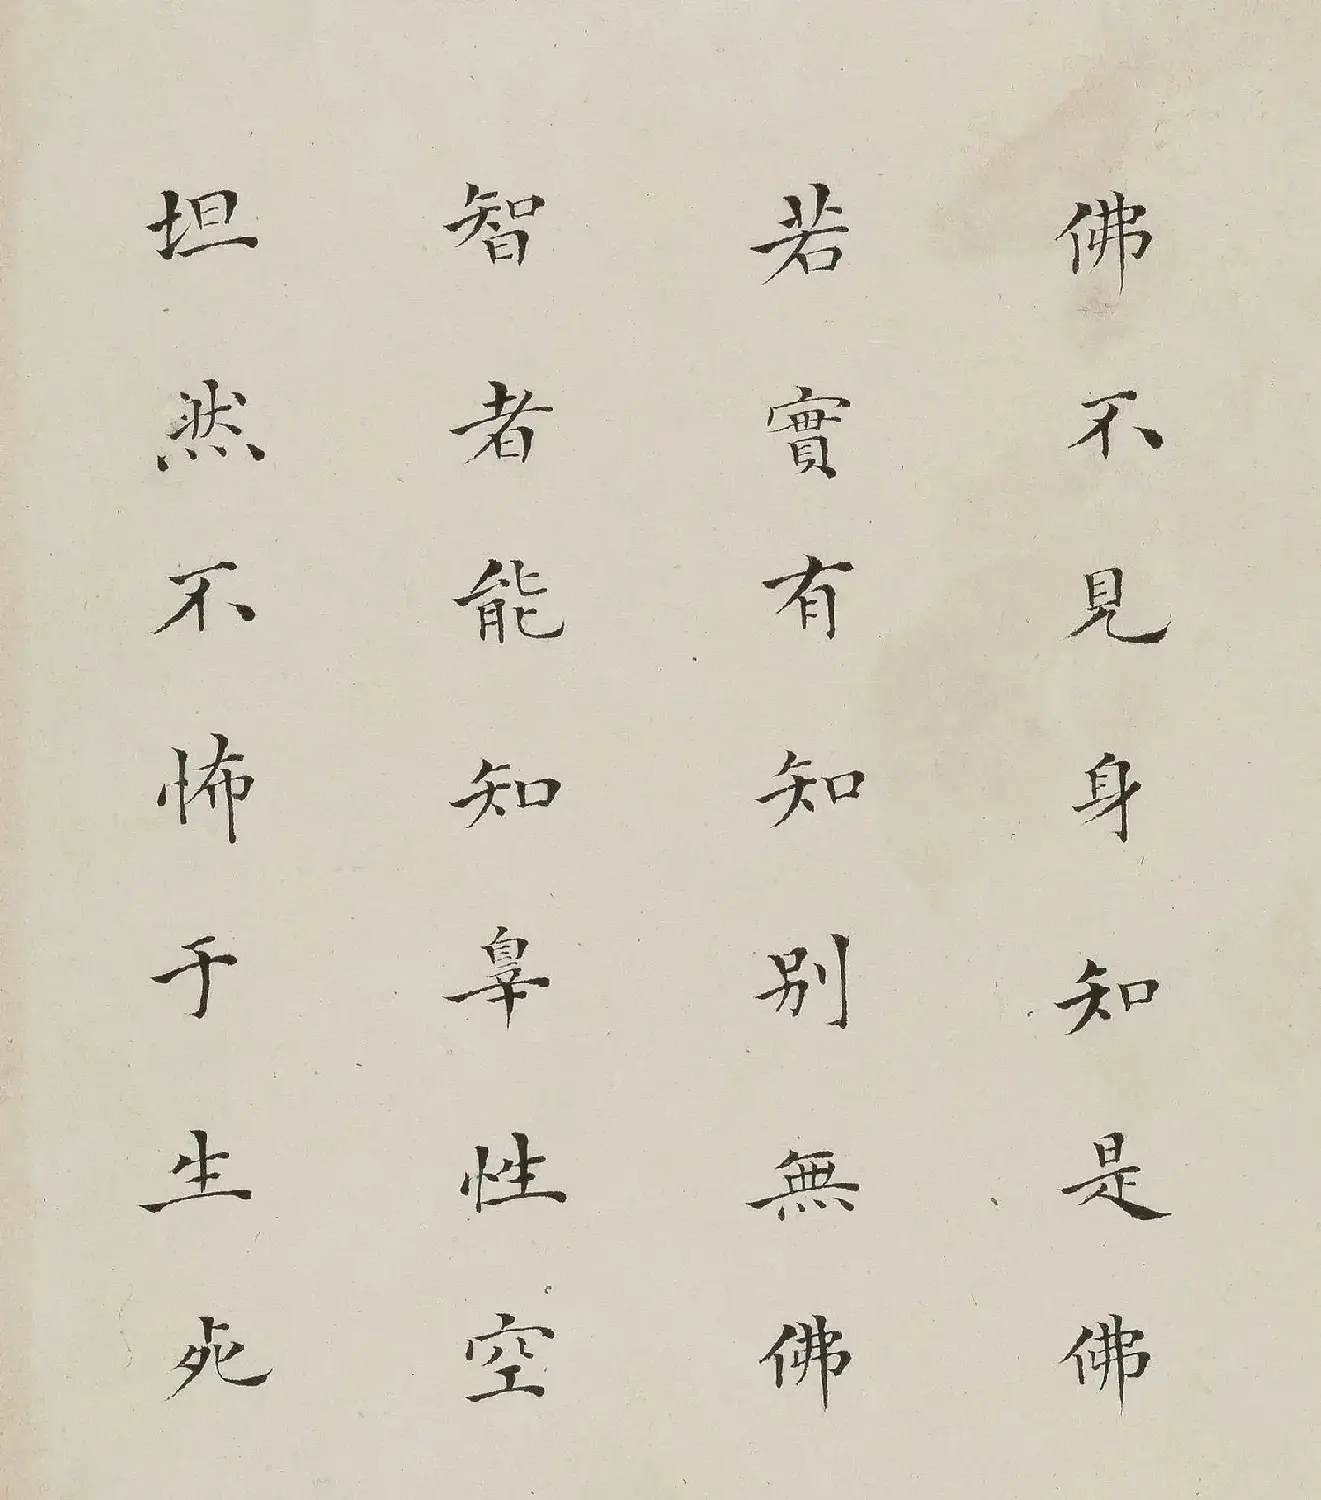 佛不見身知是佛
若實有知別無佛
智者能知辠性空
坦然不怖于生死